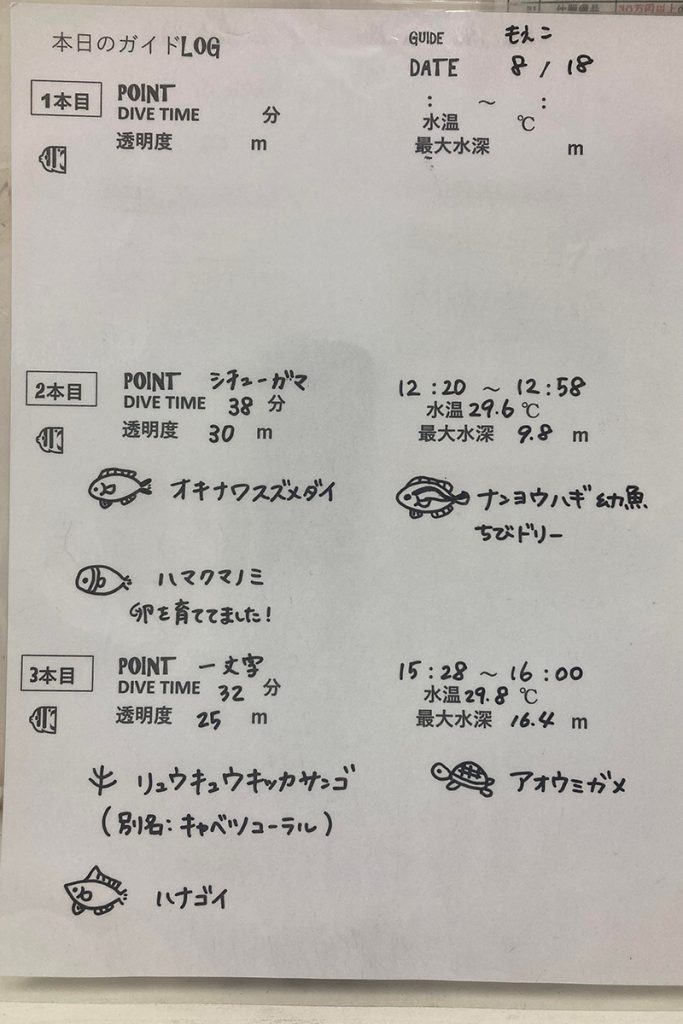 本日のガイドLOG
GUIDE もえこ
DATE 8 / 18
1本目 POINT
DIVE TIME 分 : ～ :
水温 ℃
透明度 m 最大水深 m
2本目 POINT シチューガマ 12 : 20 ～ 12 : 58
DIVE TIME 38 分 水温 29.6 ℃
透明度 30 m 最大水深 9.8 m
オキナワスズメダイ
ナンヨウハギ 幼魚
ちびドリー
ハマクマノミ
卵を育ててました!
3本目 POINT 一文字 15 : 28 ～ 16 : 00
DIVE TIME 32 分 水温 29.8 ℃
透明度 25 m 最大水深 16.4 m
リュウキュウキッカサンゴ
(別名:キャベツコーラル)
アオウミガメ
ハナゴイ